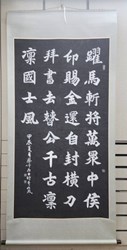 躍馬斬將萬眾中侯
印賜金還自封橫刀
拜書去替公千古凜
凜國士風